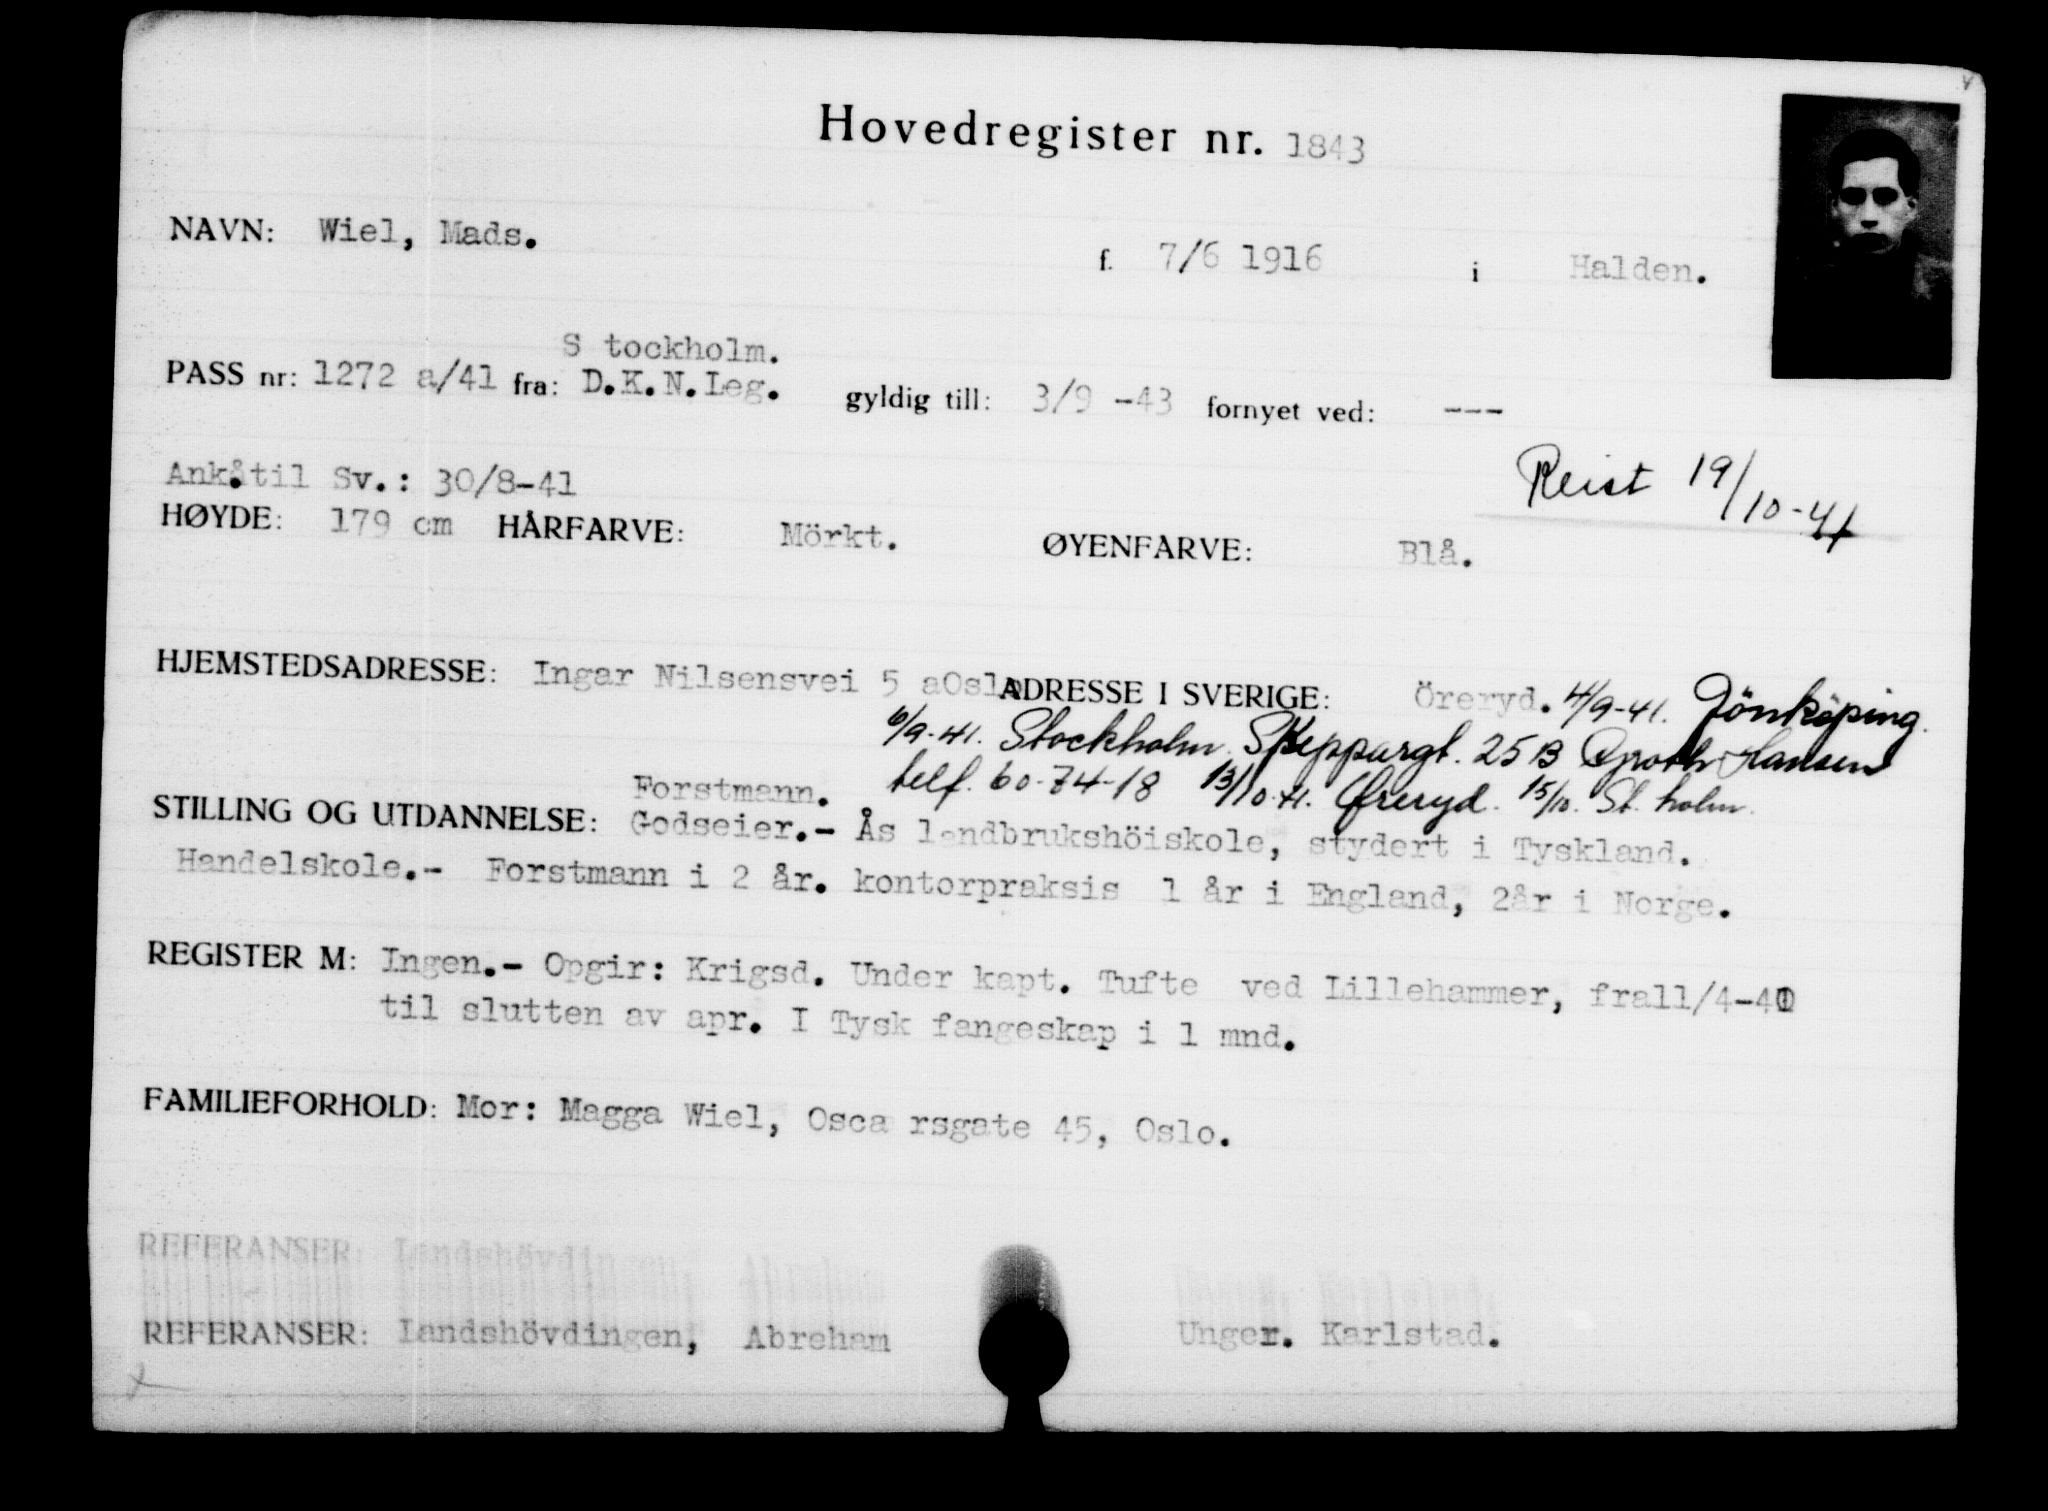 Hovedregister nr. 1843
NAVN: Wiel, Mads. f. 7/6 1916 i Halden.
S tockholm.
PASS nr: 1272 a/41 fra: D.K.N.Leg. gyldig till: 3/9 -43 fornyet ved: ---
Ank.til Sv.: 30/8-41
Reist 19/10-41
HØYDE: 179 cm HÅRFARVE: Mörkt. ØYENFARVE: Blå.
HJEMSTEDSADRESSE: Ingar Nilsensvei 5 aOslo ADRESSE I SVERIGE: Öreryd. 4/9-41. Jönköping.
6/9-41. Stockholm. Skeppargt. 25 B Groth Hansen
telf. 60-74-18 13/10-41. Øreryd. 15/10. St. holm.
Forstmann.
STILLING OG UTDANNELSE: Godseier.- Ås landbrukshöiskole, stydert i Tyskland.
Handelskole.- Forstmann i 2 år. kontorpraksis 1 år i England, 2år i Norge.
REGISTER M: Ingen.- Opgir: Krigsd. Under kapt. Tufte ved Lillehammer, fra11/4-40
til slutten av apr. I Tysk fangeskap i 1 mnd.
FAMILIEFORHOLD: Mor: Magga Wiel, Osca rsgate 45, Oslo.
REFERANSER: Landshövdingen,
REFERANSER: Landshövdingen, Abraham Unger. Karlstad.